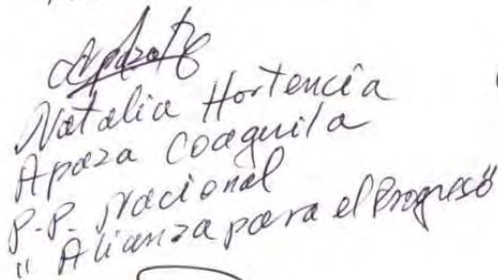 Natalia Hortencia
Apaza Coaguila
P.P. Nacional
"Alianza para el Progreso"